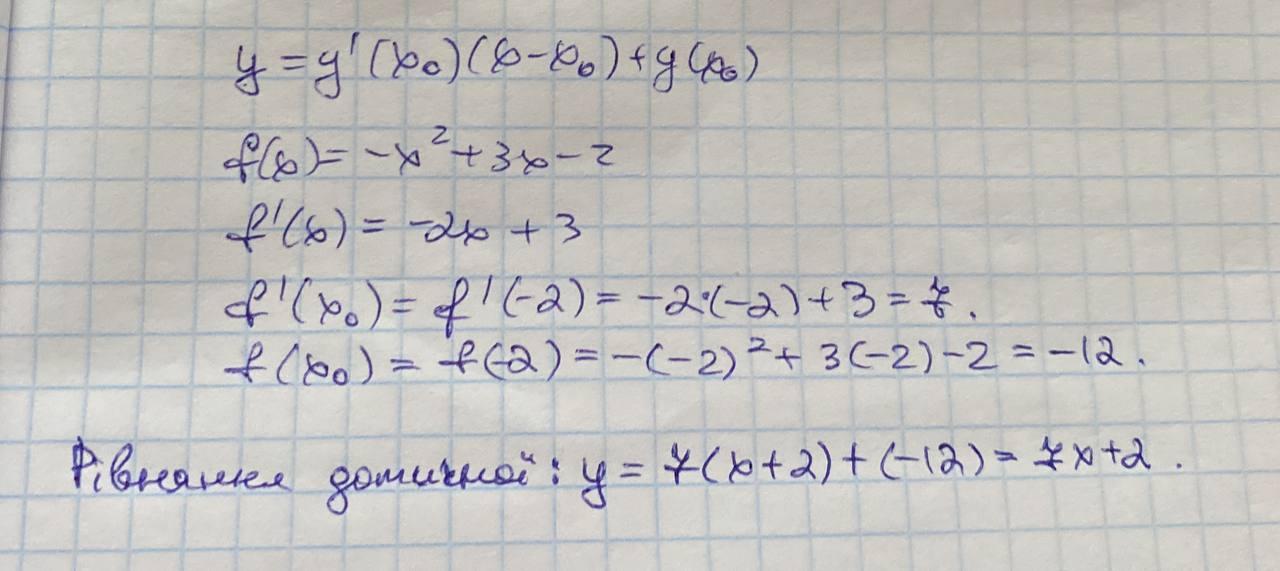 y = y'(x₀)(x-x₀)+y(x₀)
f(x)= -x²+3x-2
f'(x) = -2x + 3
f'(x₀) = f'(-2) = -2·(-2)+3 = 7.
f(x₀) = f(-2) = -(-2)²+ 3(-2)-2 = -12.
Рівняння дотичної: y = 7(x+2)+(-12)= 7x+2.